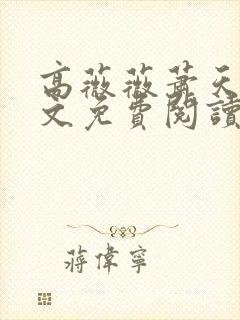 高薇薇蕭天
文免費閱讀
蔣偉寧